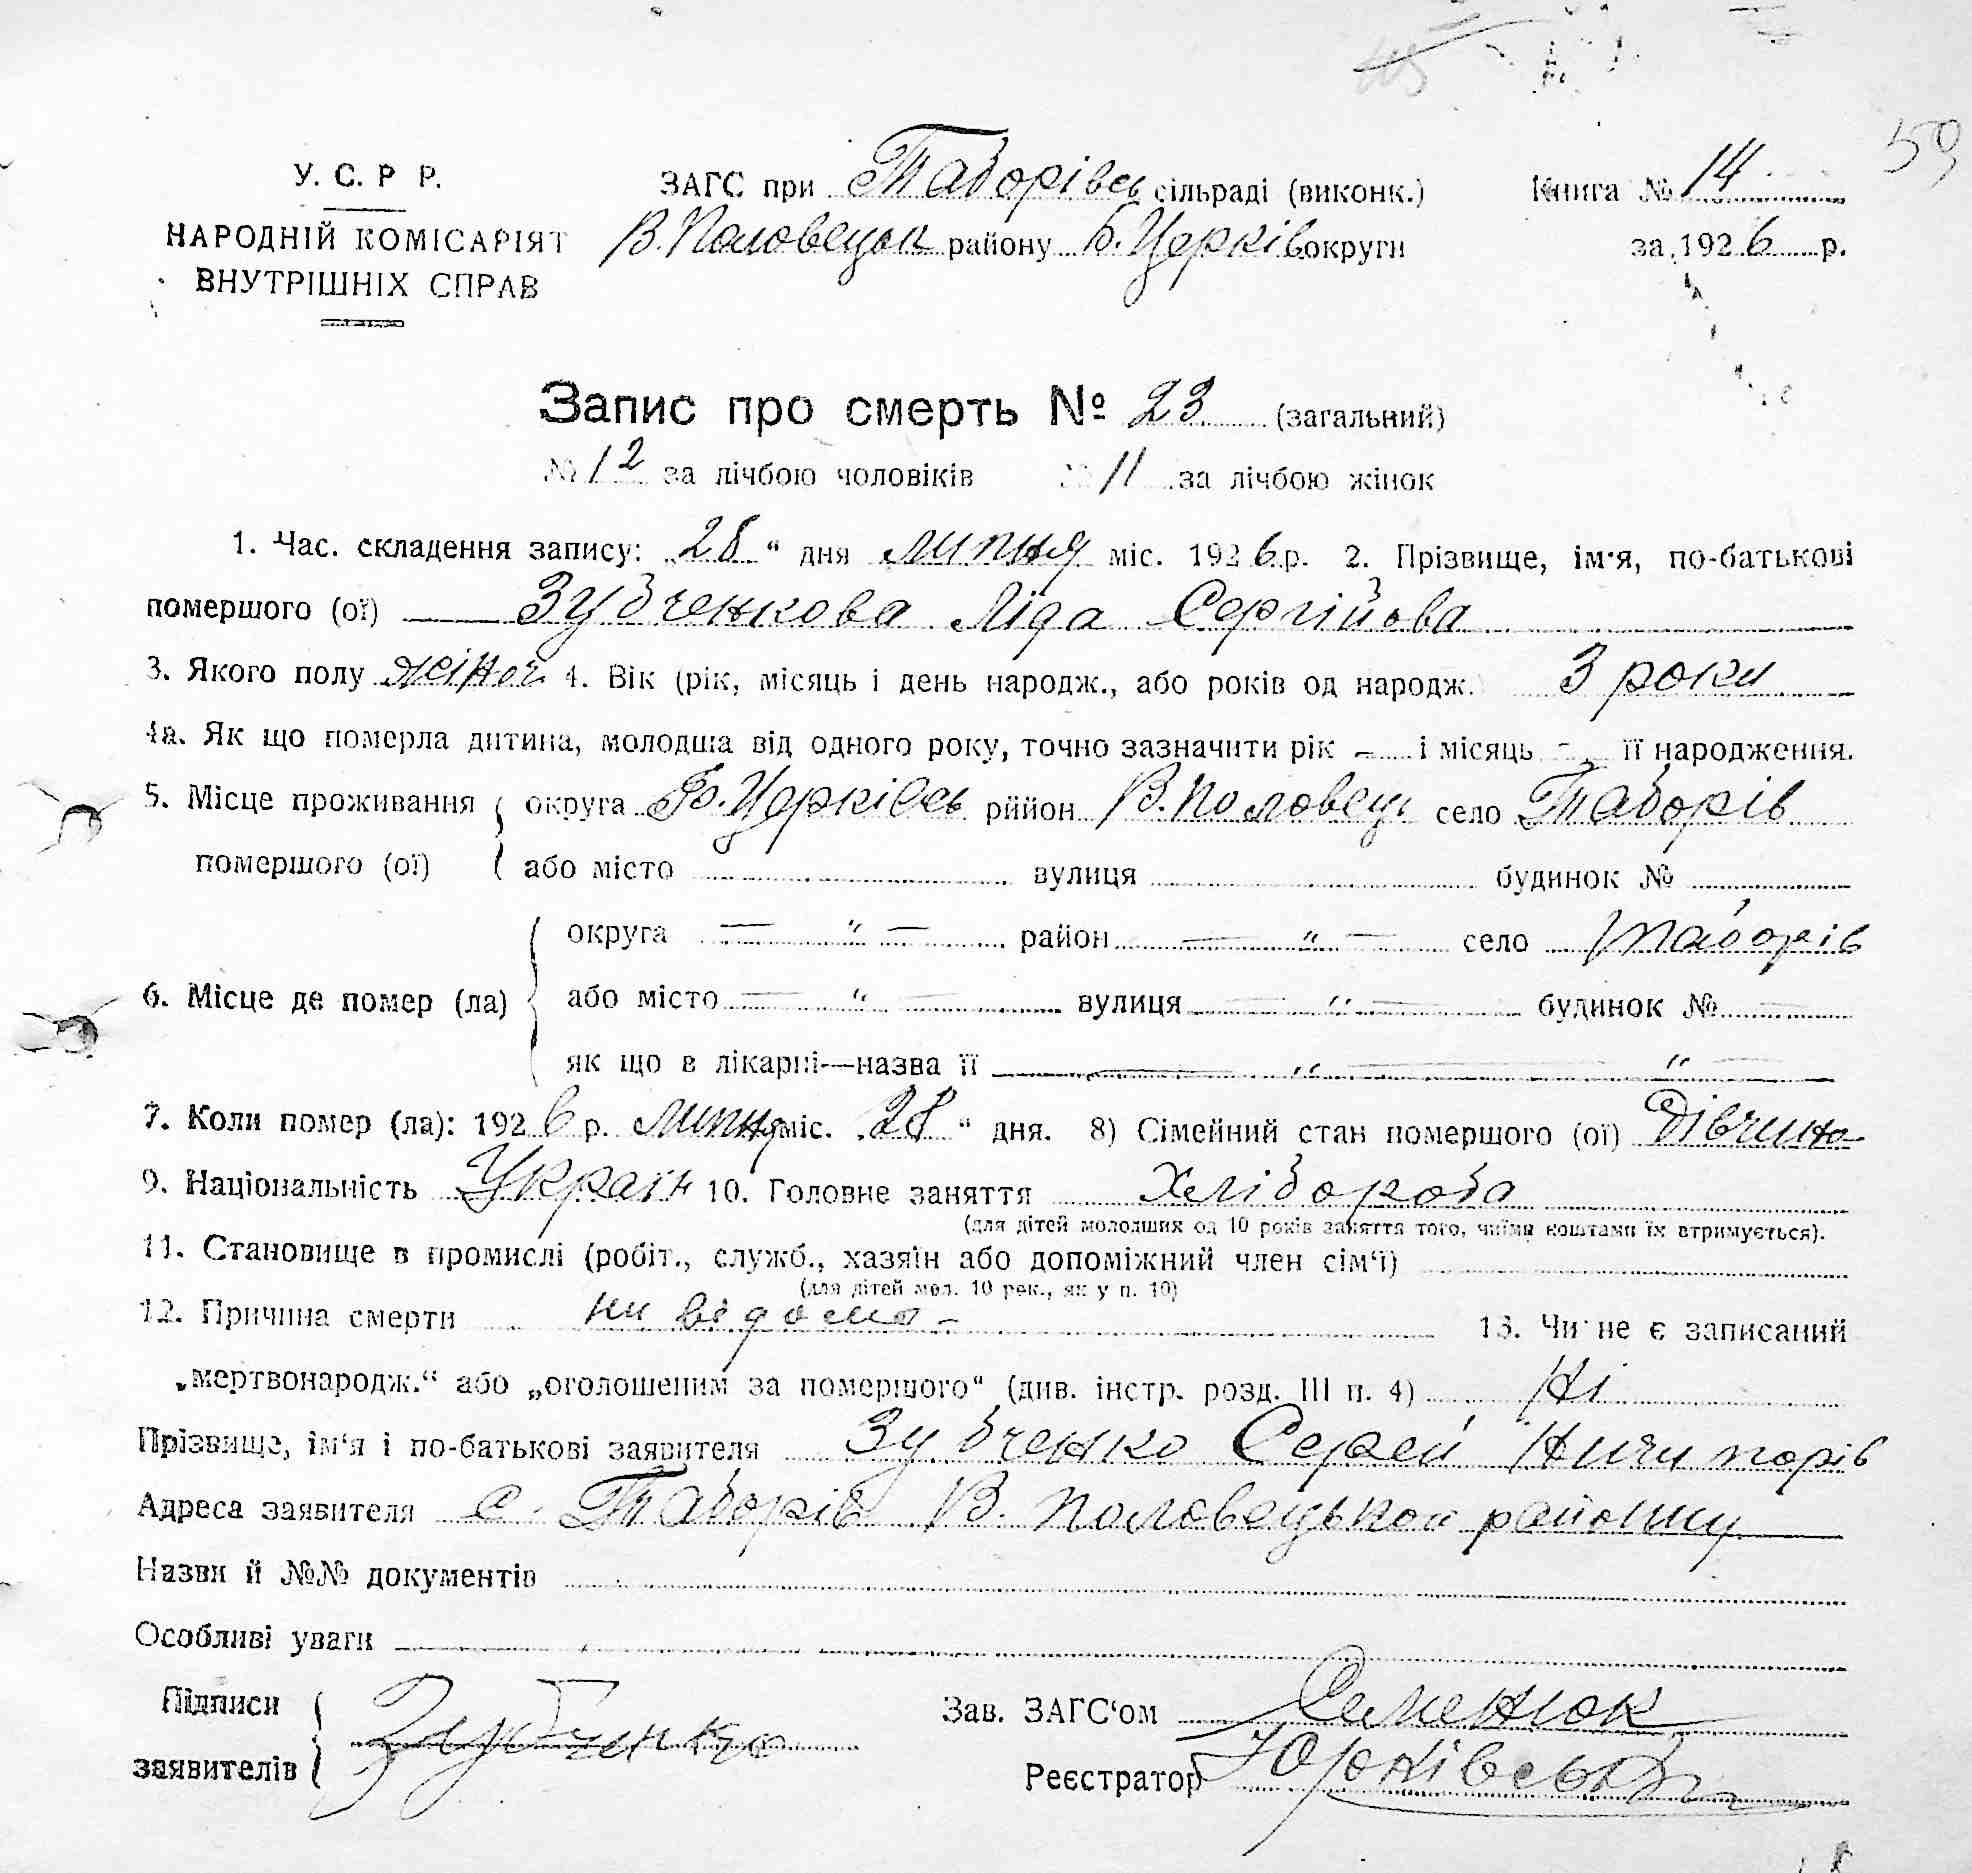 59
У. С. Р Р.
НАРОДНІЙ КОМІСАРІЯТ
ВНУТРІШНІХ СПРАВ
ЗАГС при Таборівсь сільраді (виконк.)
В. Половецьк району Б. Церків округи
Книга № 14
за 1926 р.
Запис про смерть № 23 (загальний)
№ 12 за лічбою чоловіків № 11 за лічбою жінок
1. Час. складення запису: „28“ дня липня міс. 1926 р. 2. Прізвище, ім'я, по-батькові
помершого (ої) Зубченкова Ліда Сергійова
3. Якого полу жіноч 4. Вік (рік, місяць і день народж., або років од народж.) 3 роки
4а. Як що померла дитина, молодша від одного року, точно зазначити рік — і місяць — її народження.
5. Місце проживання округа Б. Церківсь рййон В. Половець село Таборів
помершого (ої) або місто вулиця будинок №
округа — „ — район — „ — село Таборів
6. Місце де помер (ла) або місто — „ — вулиця — „ — будинок № —
як що в лікарні—назва її — „ — „ —
7. Коли помер (ла): 1926 р. липня міс. „28“ дня. 8) Сімейний стан помершого (ої) Дівчина
9. Національність Україн 10. Головне заняття Хлібороба
(для дітей молодших од 10 років заняття того, чиїми коштами їх втримується).
11. Становище в промислі (робіт., служб., хазяїн або допоміжний член сім'ї)
(для дітей мол. 10 рок., як у п. 10)
12. Причина смерти ни відомо — 13. Чи не є записаний
„мертвонародж.“ або „оголошеним за помершого“ (див. інстр. розд. III п. 4) Ні
Прізвище, ім'я і по-батькові заявителя Зубченко Сергей Ничипорів
Адреса заявителя с. Таборів В. Половецького району
Назви й №№ документів
Особливі уваги
Підписи
заявителів Зубченко
Зав. ЗАГС'ом Семенюк
Реєстратор